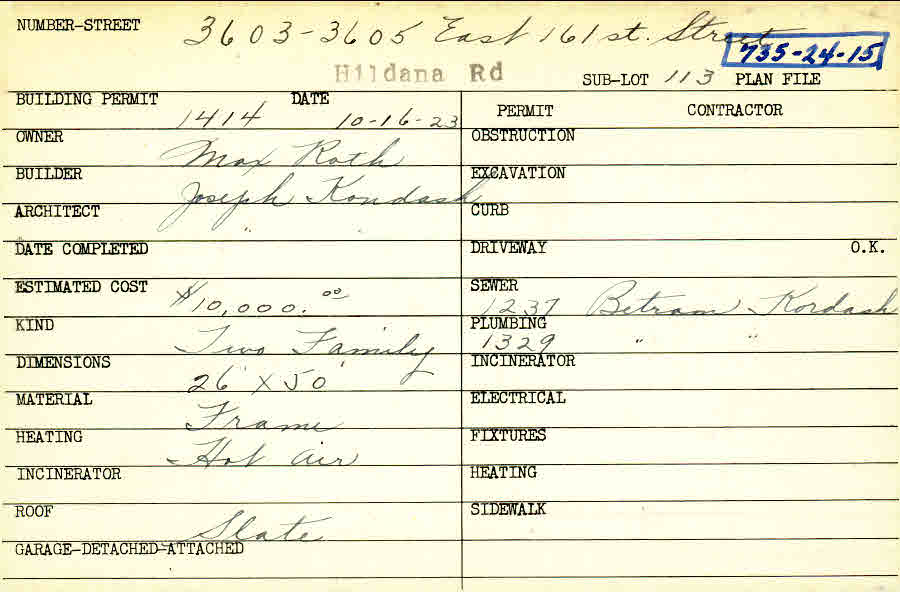 NUMBER-STREET 3603-3605 East 161 st. Street
735-24-15
Hildana Rd
SUB-LOT 113 PLAN FILE
BUILDING PERMIT 1414 DATE 10-16-23
PERMIT CONTRACTOR
OWNER Max Roth
OBSTRUCTION
BUILDER Joseph Kondash
EXCAVATION
ARCHITECT "
CURB
DATE COMPLETED
DRIVEWAY O.K.
ESTIMATED COST $10,000.00
SEWER 1237 Betram Kordash
KIND Two Family
PLUMBING 1329 " "
DIMENSIONS 26' X 50'
INCINERATOR
MATERIAL Frame
ELECTRICAL
HEATING Hot air
FIXTURES
INCINERATOR
HEATING
ROOF Slate
SIDEWALK
GARAGE-DETACHED-ATTACHED